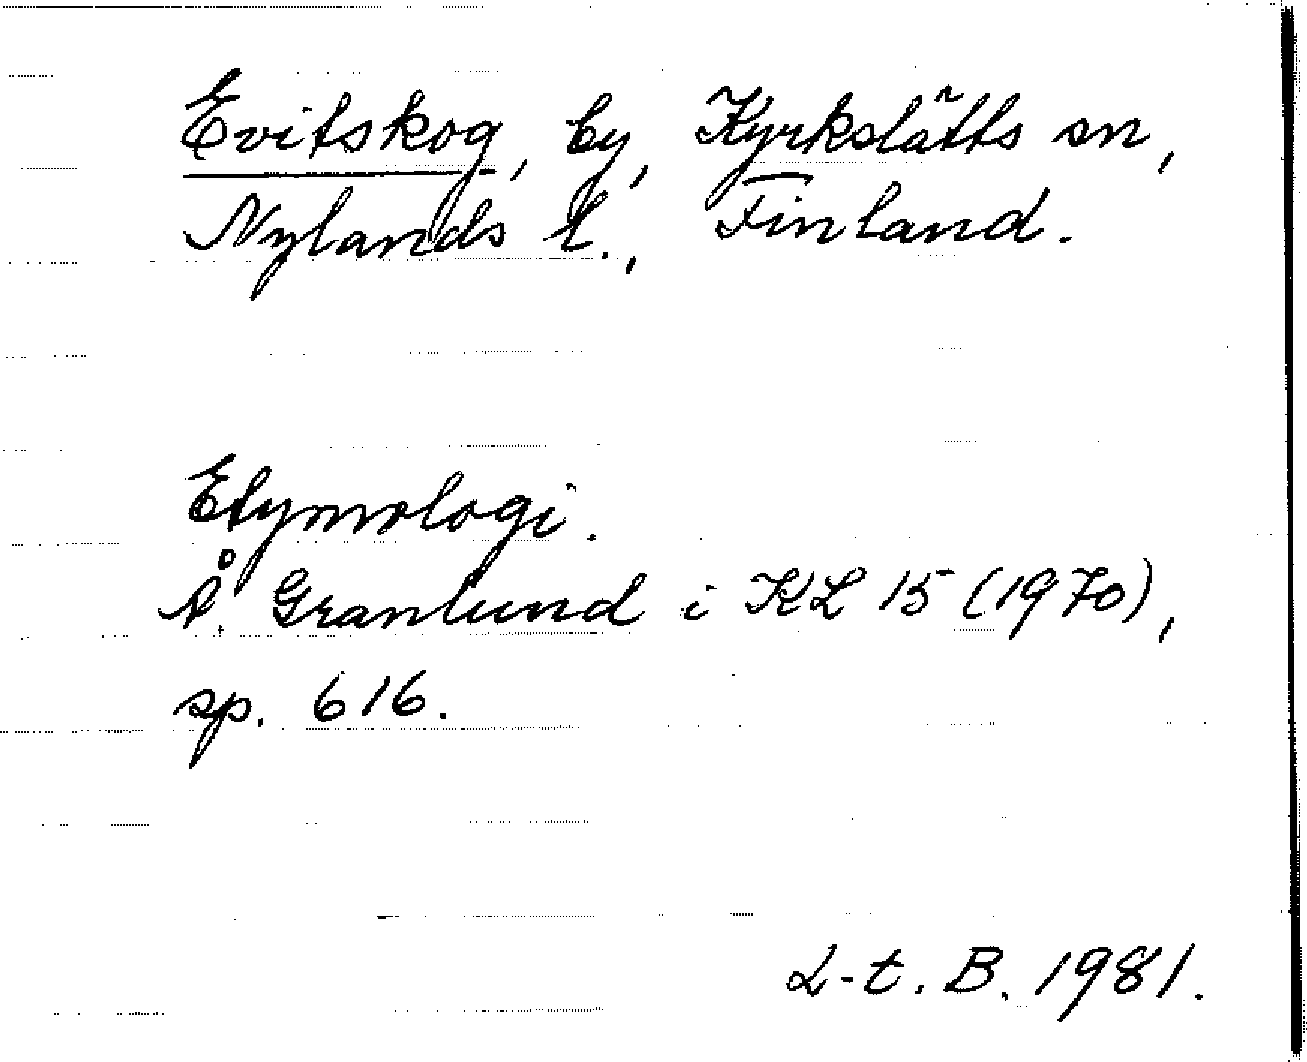 Evitskog, by, Kyrkslätts sn,
Nylands l., Finland.
Etymologi.
Å. Granlund i KL 15 (1970),
sp. 616.
L-t. B. 1981.